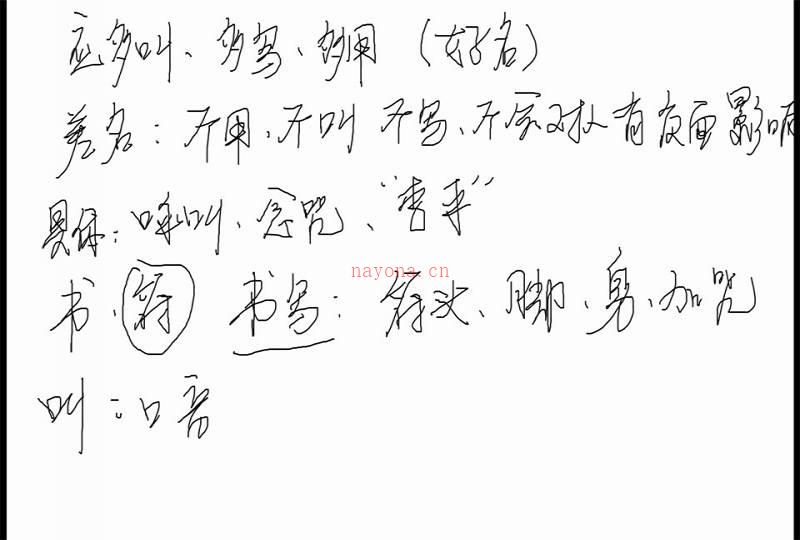 应多叫、多写、多用(好名)
差名:不用、不叫 不写、不会对人有负面影响
具体:呼叫、念咒、“李平”
nayona.cn
书、符 书写:符头、脚、身、加咒
叫:口音